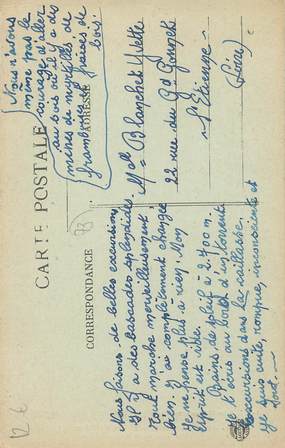 CARTE POSTALE
CORRESPONDANCE
ADRESSE
Nous faisons de belles excursions
Il y a des cascades splendides.
Tout marche merveilleusement
bien. Je ai complètement changée
Je ne pense plus à rien. Mon
esprit est vide.
Bains de soleil à 2.700 m.
Je t'écris au bord d'un torrent
excursions dans la caillasse.
Je suis cuite, rompue, inconsciente et
tout. —
Melle Blanchet Yvette
22 rue du Gd Gonnet
St Etienne —
(Loire)
Nous n'avons
même pas le
courage d'aller
au bois où il y a des
masses de myrtilles de
framboises et fraises de
bois.
73
12 €